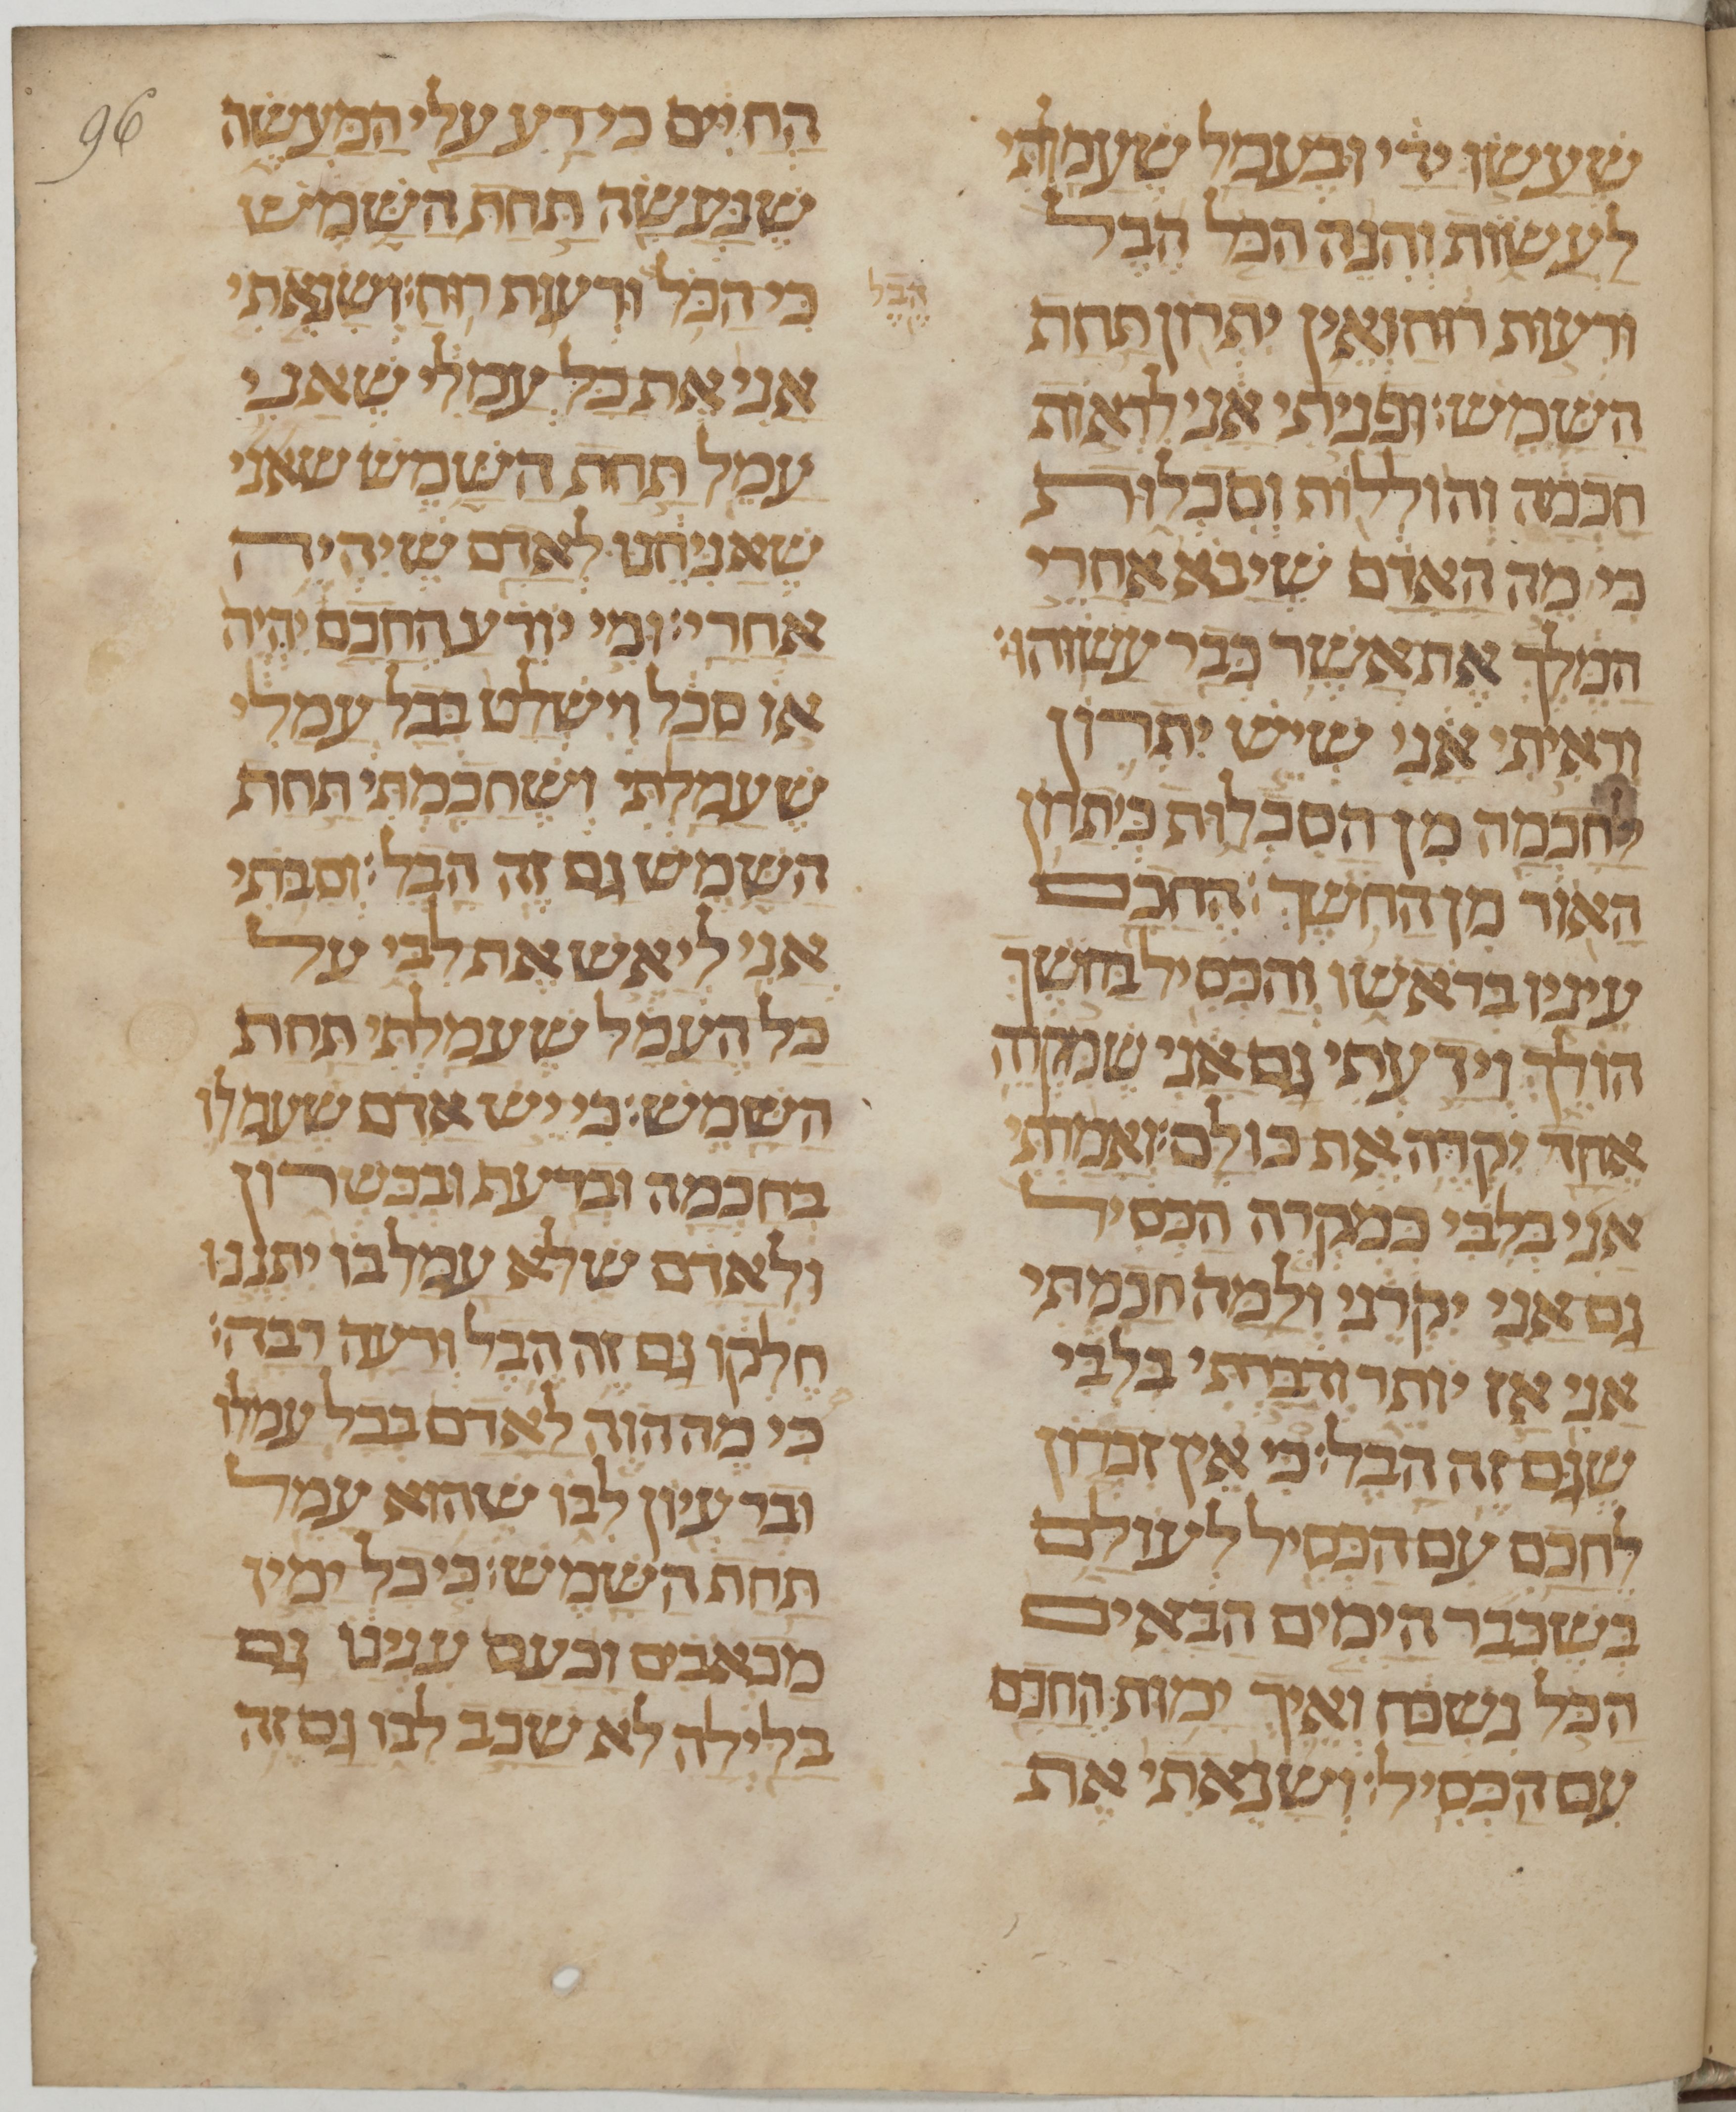 שעשו ידי ובעמל שעמלתי
לעשות והנה הכל הבל
ורעות רוח ואין יתרון תחת
השמש׃ ופניתי אני לראות
חכמה והוללות וסכלות
כי מה האדם שיבא אחרי
המלך את אשר כבר עשוהו׃
וראיתי אני שיש יתרון
לחכמה מן הסכלות כיתרון
האור מן החשך׃ החכם
עיניו בראשו והכסיל בחשך
הולך וידעתי גם אני שמקרה
אחד יקרה את כולם׃ ואמרתי
אני בלבי כמקרה הכסיל
גם אני יקרני ולמה חכמתי
אני אז יותר ודברתי בלבי
שגם זה הבל׃ כי אין זכרון
לחכם עם הכסיל לעולם
בשכבר הימים הבאים
הכל נשכח ואיך ימות החכם
עם הכסיל׃ ושנאתי את
הבל
96
החיים כי רע עלי המעשה
שנעשה תחת השמש
כי הכל ורעות רוח׃ ושנאתי
אני את כל עמלי שאני
עמל תחת השמש שאני
שאניחנו לאדם שיהיה
אחרי׃ ומי יודע החכם יהיה
או סכל וישלט בכל עמלי
שעמלתי ושחכמתי תחת
השמש גם זה הבל׃ וסבותי
אני ליאש את לבי על
כל העמל שעמלתי תחת
השמש׃ כי יש אדם שעמלו
בחכמה ובדעת ובכשרון
ולאדם שלא עמל בו יתננו
חלקו גם זה הבל ורעה רבה׃
כי מה הוה לאדם בכל עמלו
וברעיון לבו שהוא עמל
תחת השמש׃ כי כל ימיו
מכאבים וכעס ענינו גם
בלילה לא שכב לבו גם זה